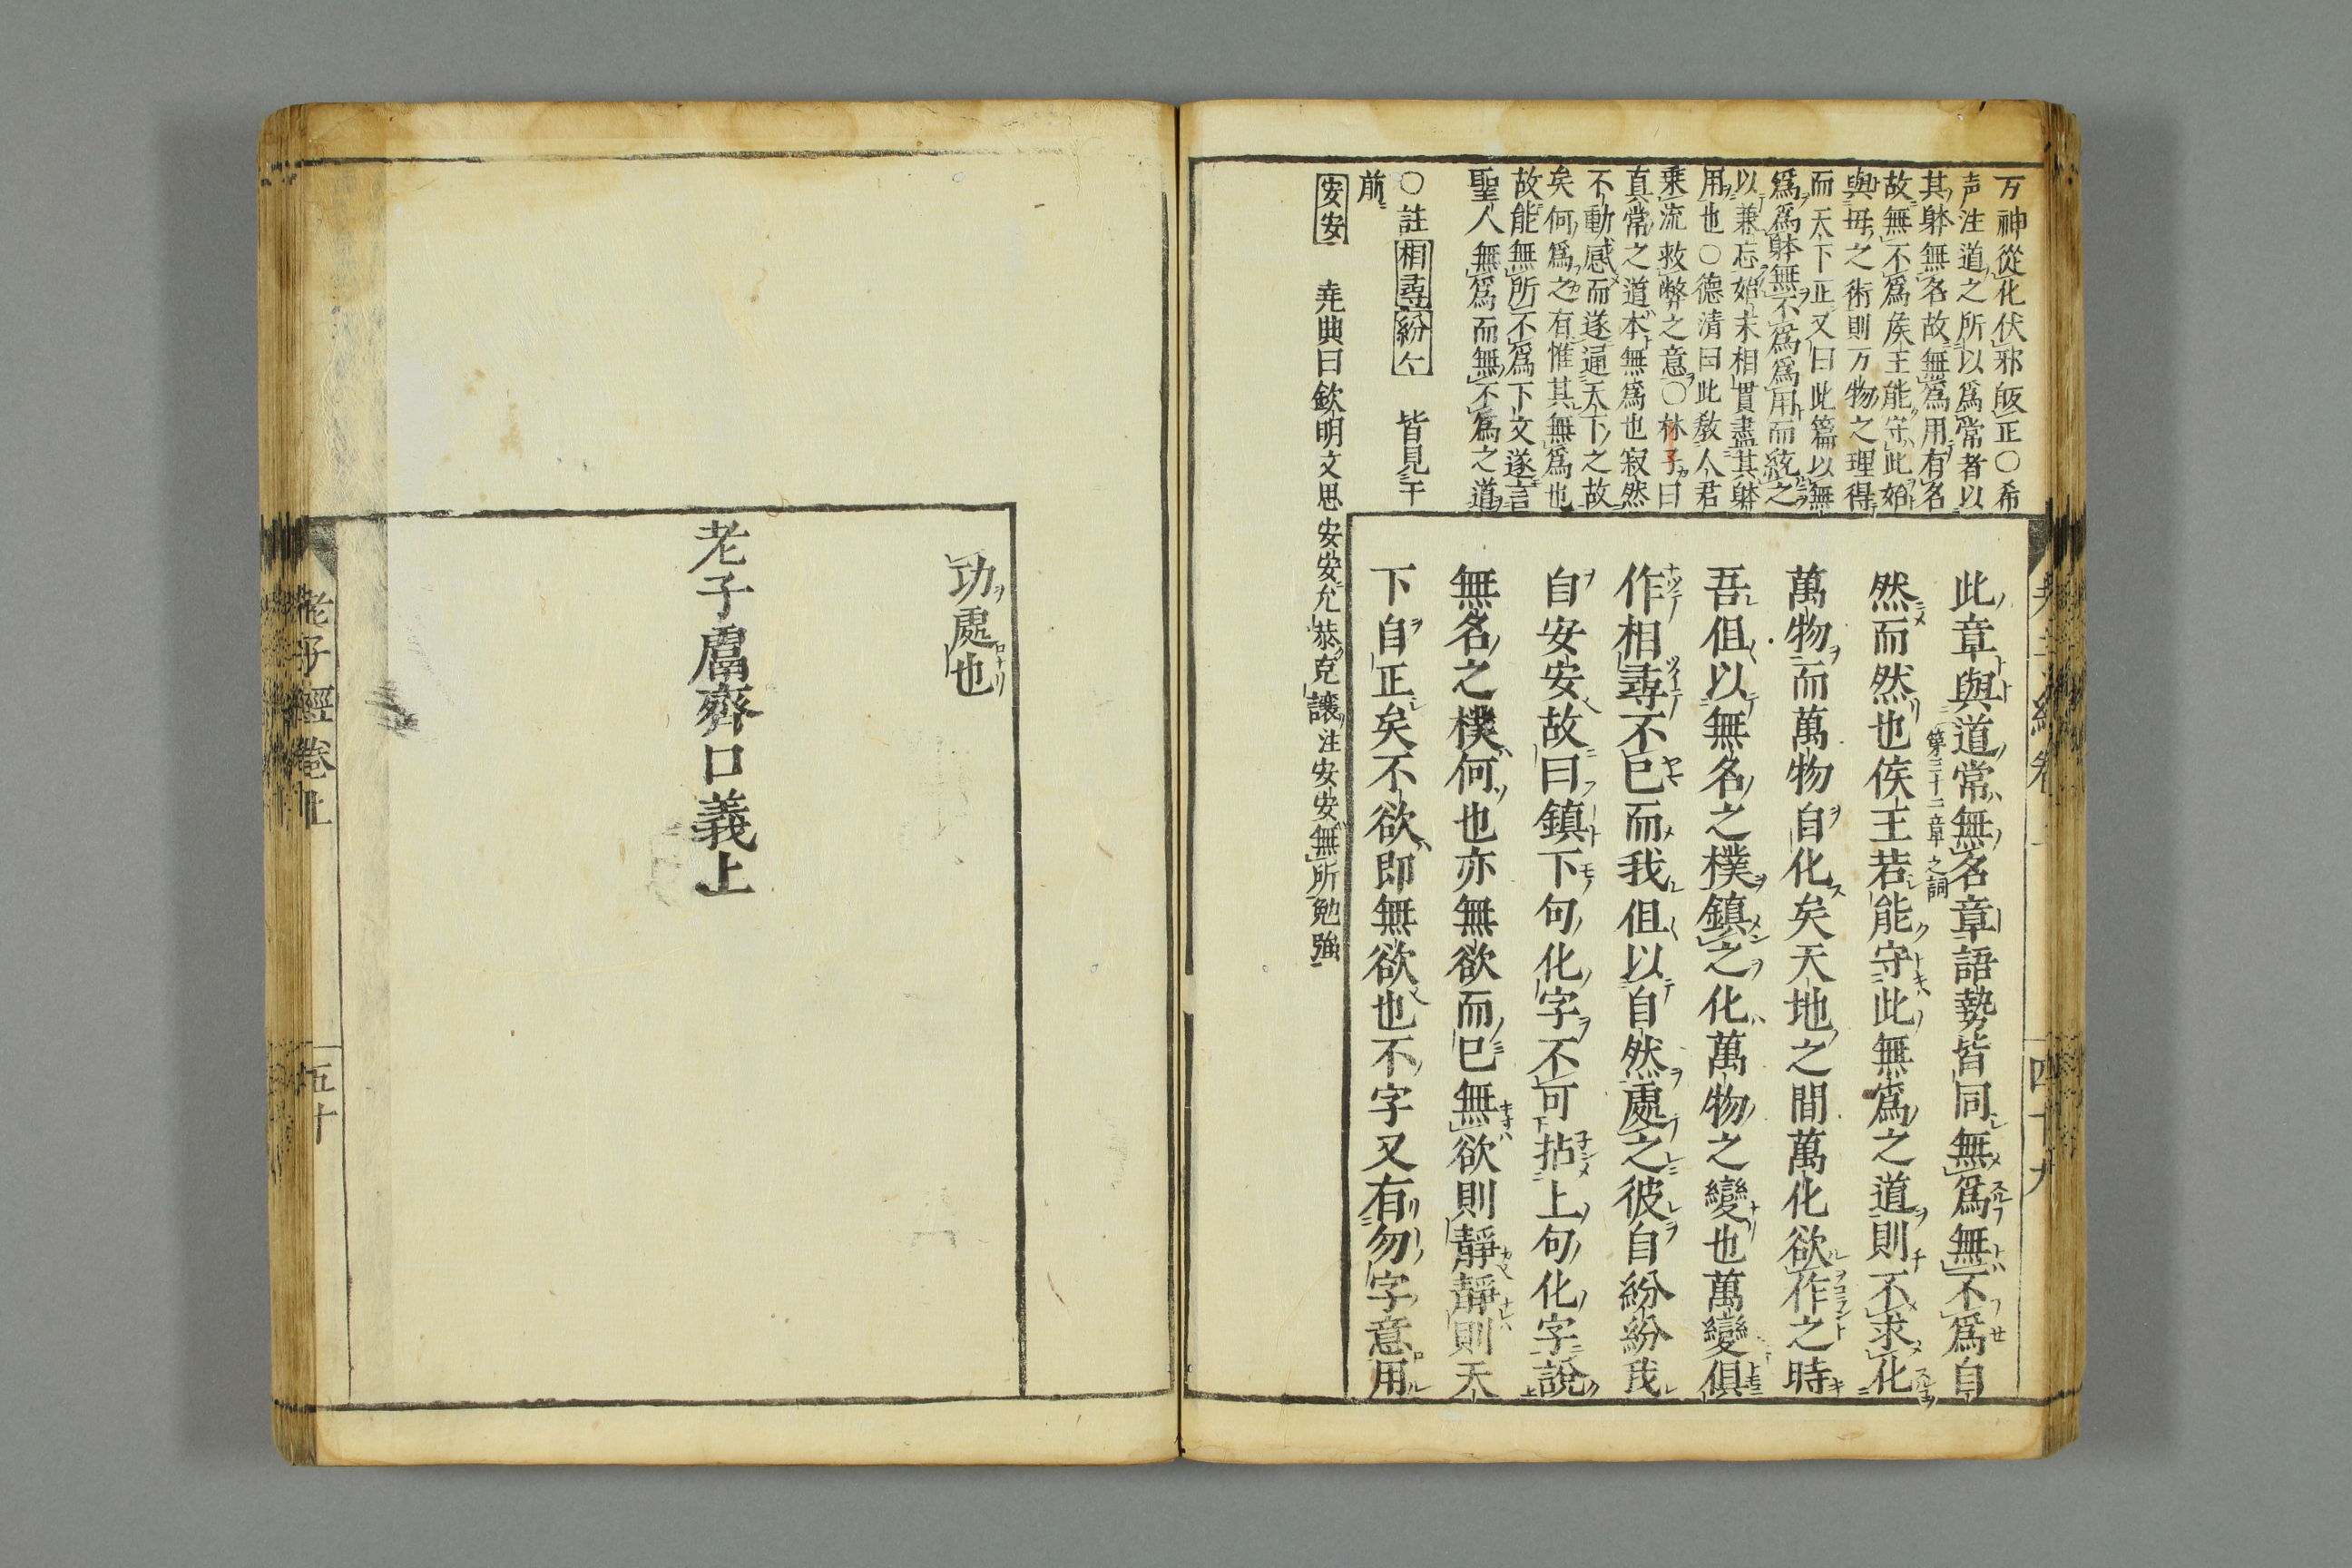 万神從化伏邪皈正〇希
声注道之所以爲常者以
其躰無名故無爲用有名
故無不爲侯王能守此始
與毋之術則万物之理得
而天下正又曰此篇以無
爲爲躰無不爲爲用而統之
以兼忘始末相貫盡其躰
用也〇德清曰此教人君
乘流救弊之意〇林子曰
真常之道本無爲也寂然
不動感而遂通天下之故
矣何爲之有惟其無爲也
故能無所不爲下文遂言
聖人無爲而無不爲之道
〇註相尋紛〻皆見于
前
安安 堯典曰欽明文思安安允恭克讓注安安無所勉強
此章與道常無名章語勢皆同無爲無不爲自
第三十二章之詞
然而然也侯王若能守此無爲之道則不求化
萬物而萬物自化矣天地之間萬化欲作之時
吾但以無名之樸鎮之化萬物之變也萬變俱
作相尋不已而我但以自然處之彼自紛紛我
自安安故曰鎮下句化字不可拈上句化字說
無名之樸何也亦無欲而已無欲則靜靜則天
下自正矣不欲即無欲也不字又有勿字意用
四十九
功處也
老子鬳齊口義上
老子經卷上
五十